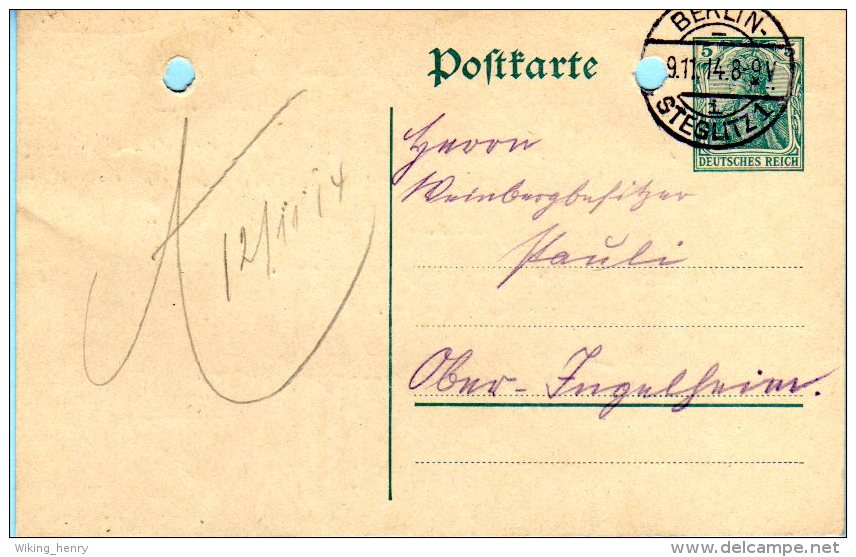 Postkarte
BERLIN-
9.11.14.8-9V
STEGLITZ 1
5 5
DEUTSCHES REICH
Herrn
Weinbergbesitzer
Pauli
Ober-Ingelheim.
12/11 14
Wiking_henry
delcampe.net